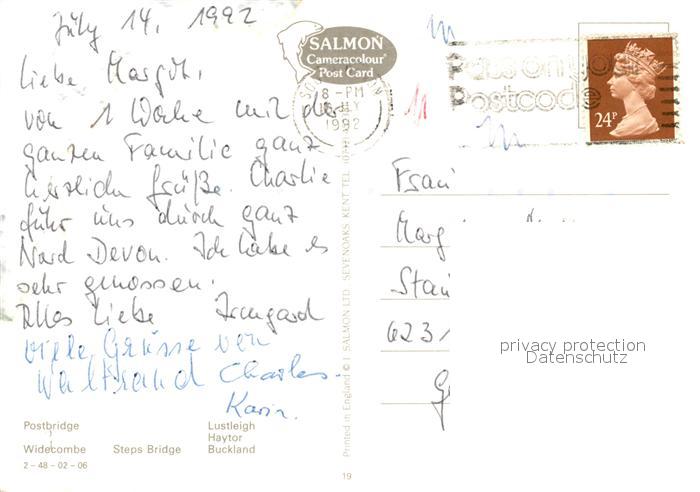 July 14, 1992
Liebe Margit,
von 1 Woche mit der
ganzen Familie ganz
herzliche Grüße. Charlie
fuhr uns durch ganz
Nord Devon. Ich habe es
sehr genossen.
Alles Liebe Irmgard
Viele Grüsse von
Waltraud Charles
Karin.
Postbridge
Widecombe
Steps Bridge
Lustleigh
Haytor
Buckland
2-48-02-06
SALMON
Cameracolour
Post Card
8-PM
JLY
1992
Pass on your
Postcode
24P
Printed in England © J SALMON LTD. SEVENOAKS KENT TEL.
19
Frau
Marg
Stau
623
G
privacy protection
Datenschutz